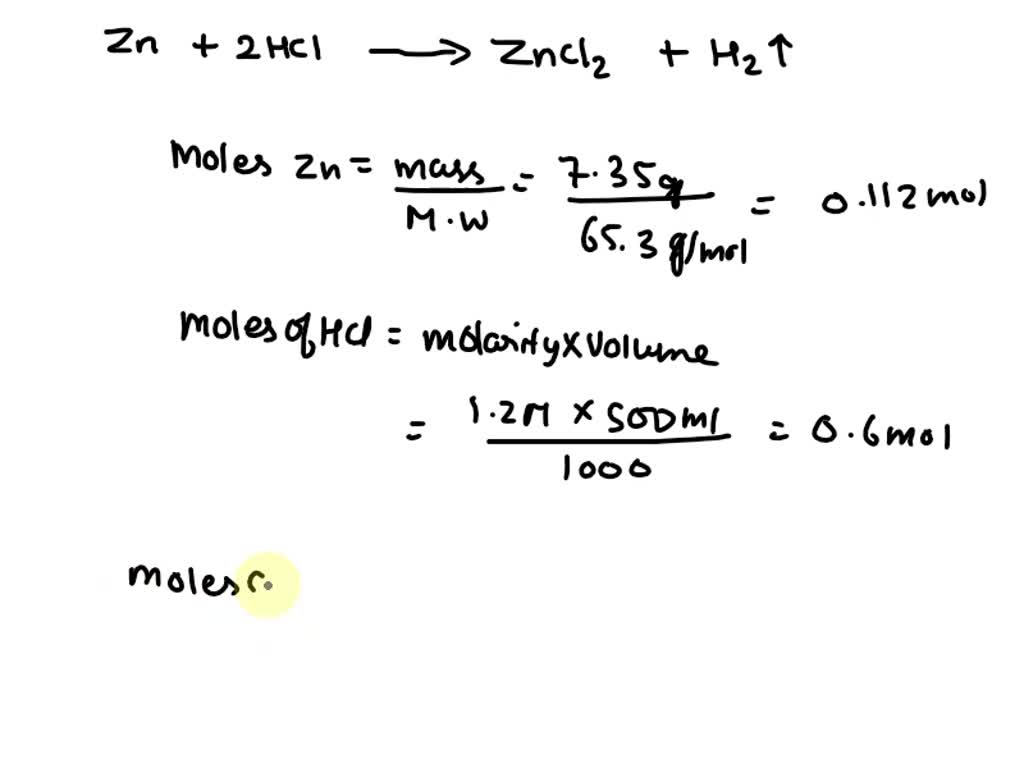 Zn + 2HCl → ZnCl2 + H2↑
Moles Zn = mass / M.W = 7.35g / 65.3 g/mol = 0.112 mol
Moles of HCl = molarity x volume
= 1.2M x 500ml / 1000 = 0.6mol
moles